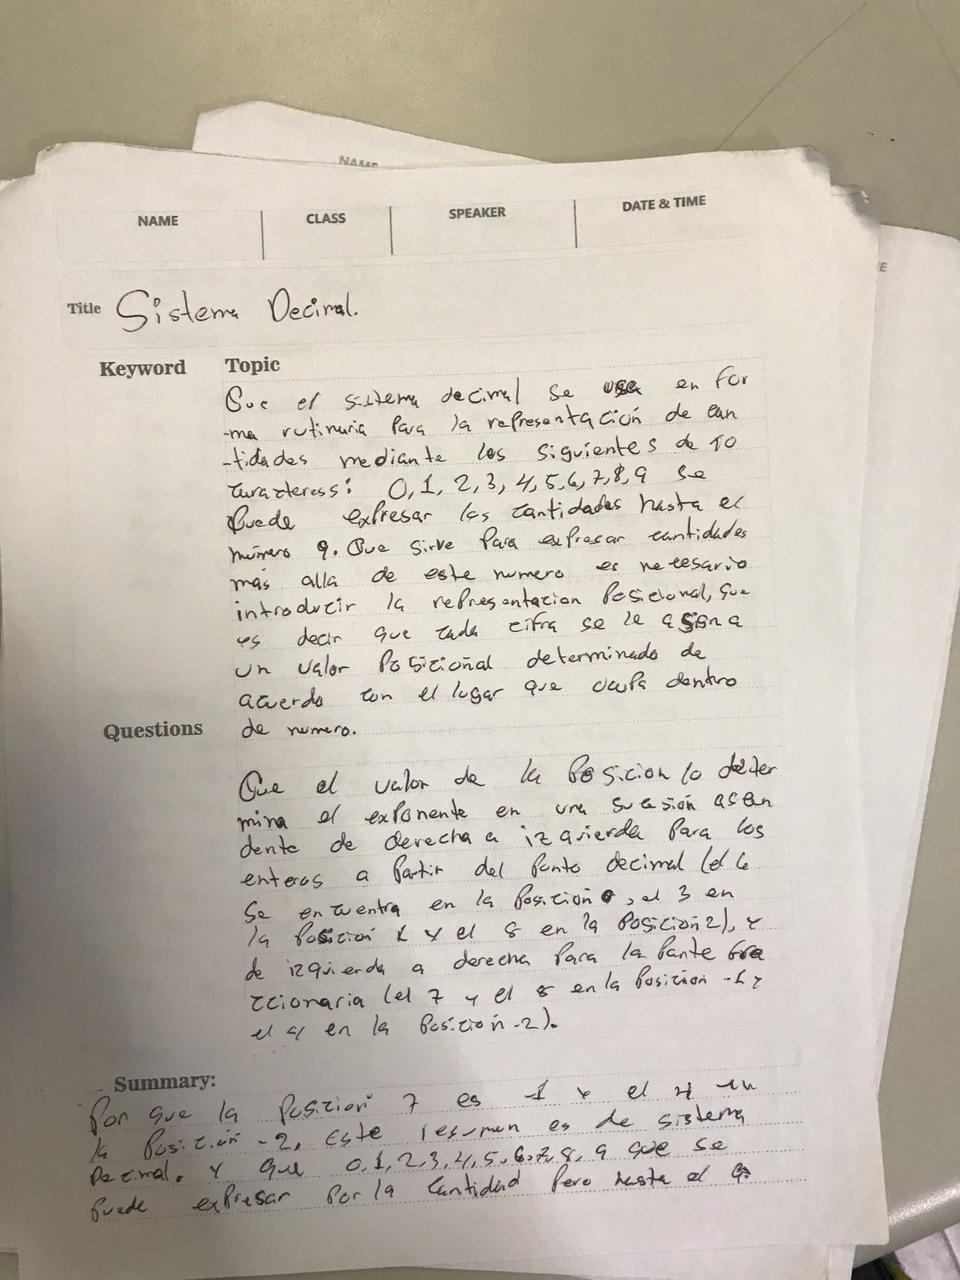 NAME
NAME
CLASS
SPEAKER
DATE & TIME
E
Title Sistema Decimal.
Keyword
Topic
Que el sistema decimal se usa en for
-ma rutinaria para la representación de can
-tidades mediante los siguientes de 10
caracteress: 0,1,2,3,4,5,6,7,8,9 se
Puede expresar las cantidades hasta el
número 9. Que sirve para expresar cantidades
más alla de este numero es necesario
introducir la representacion Posicional, que
es decir que cada cifra se le asigna
un valor Posicional determinado de
acuerdo con el lugar que ocupa dentro
Questions
de numero.
Que el valor de la Posicion lo deter
mina el exponente en una sucesión ascen
dente de derecha a izquierda para los
enteros a Partir del Punto decimal (el 6
Se encuentra en la Posición 0, el 3 en
la Posición 1 y el 8 en la Posición 2), y
de izquierda a derecha Para la Pante fra
ccionaria (el 7 y el 8 en la Posición -1 y
el 4 en la Posición -2).
Summary:
Por que la Posición 7 es -1 y el 4 en
la Posición -2, Este resumen es de sistema
Decimal. y que 0,1,2,3,4,5,6,7,8,9 que se
Puede expresar Por la Cantidad Pero hasta el 9.